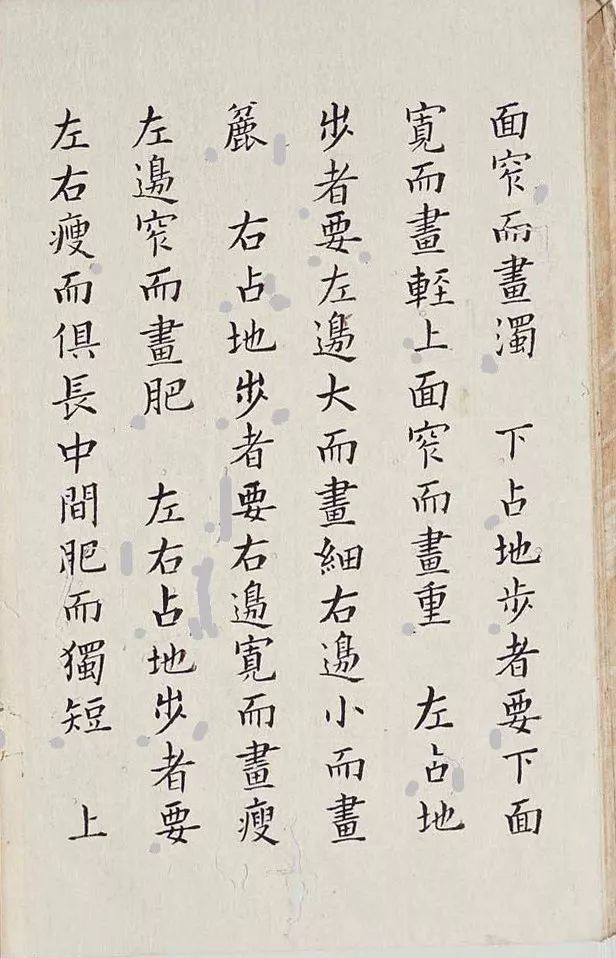 面窄而畫濁　下占地步者要下面
寬而畫輕上面窄而畫重　左占地
步者要左邊大而畫細右邊小而畫
麄　右占地步者要右邊寬而畫瘦
左邊窄而畫肥　左右占地步者要
左右瘦而俱長中間肥而獨短　上